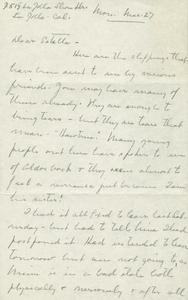 La Jolla - Cal.
Mon. Mar - 27
Dear Estelle -
Here are the clippings that
have been sent to me by various
friends - You may have many of
them already. They are enough to
bring tears - but they are tears that
Many young
people out here have spoken to me
of Alderbook & they seem almost to
feel a reverence just because I am
his sister!
I had it all fixed to leave last Sat-
urday - but had to tell him I had
postponed it. Had intended to leave
tomorrow but am not going to, as
is in a bad state both
physically & nervously & after all